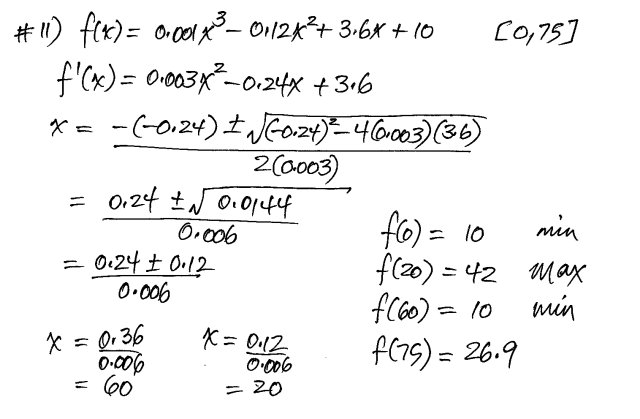 #11) f(x) = 0.001x³ - 0.12x² + 3.6x + 10 [0,75]
f'(x) = 0.003x² - 0.24x + 3.6
x = -(-0.24) ± √(-0.24)² - 4(0.003)(3.6)
2(0.003)
= 0.24 ± √0.0144
0.006
= 0.24 ± 0.12
0.006
x = 0.36
0.006
= 60
x = 0.12
0.006
= 20
f(0) = 10 min
f(20) = 42 max
f(60) = 10 min
f(75) = 26.9